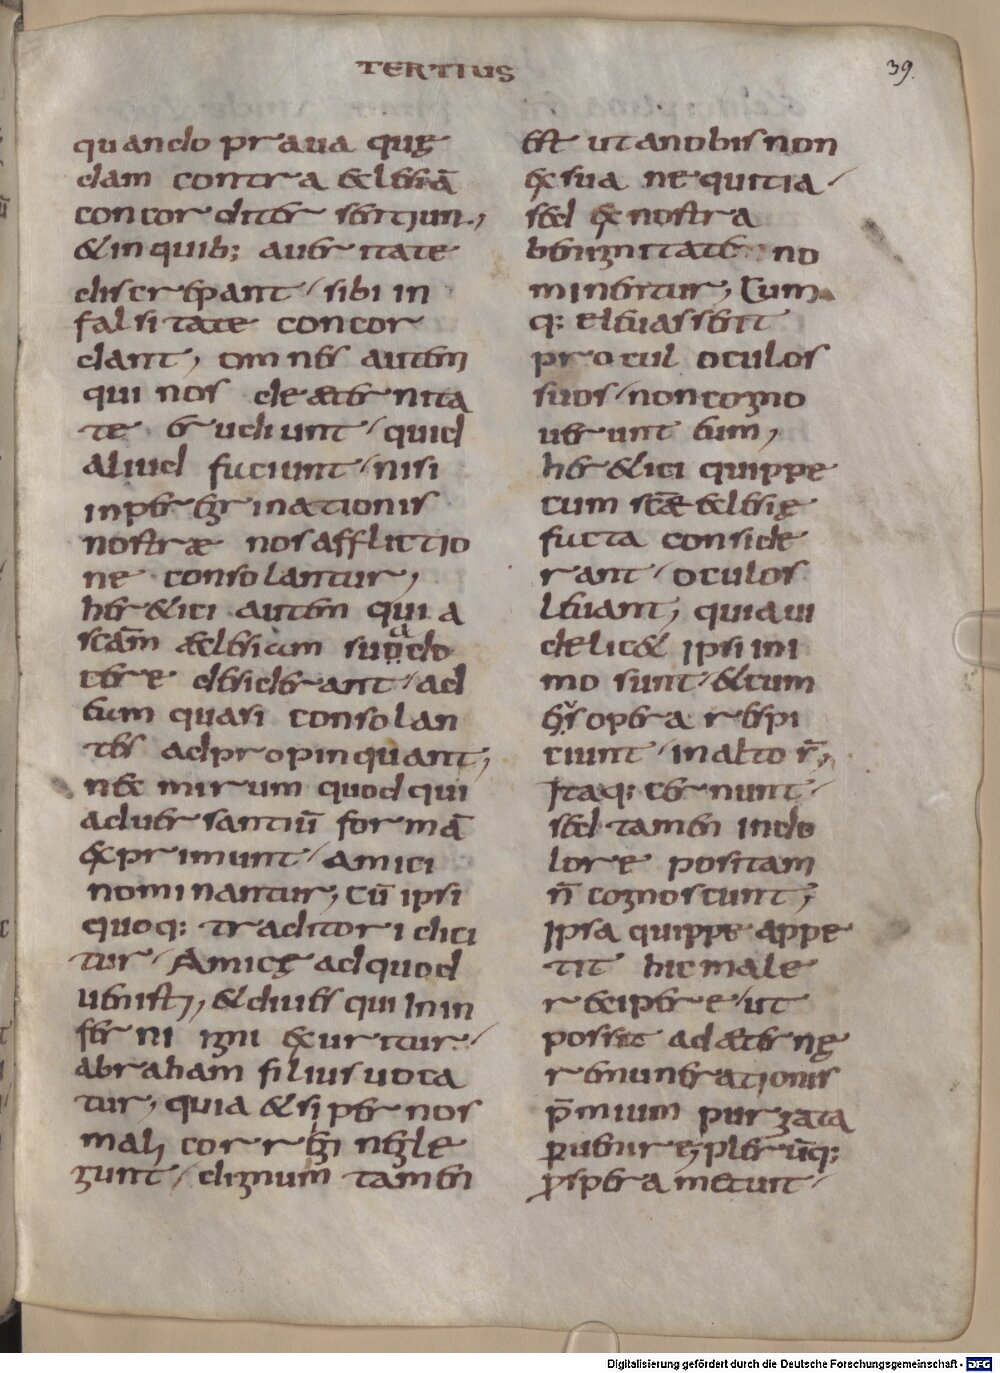 TERTIUS
39.
quando praua quę
dam contra eclesiā
concorditer sentiun.,
& in quib; aueritate
discrepant / sibi in
falsitate concor
dant, omnes autem
qui nos de aeternita
te erudiunt / quid
aliud faciunt / nisi
in peregrinationis
nostrae nos afflictio
ne consolantur,
her&ici autem qui a
scām aeclesiam suạ do
cere desiderant / ad
eum quasi consolan
tes adpropinquant,
nec mirum quod qui
aduersantiū formā
exprimunt / amici
nominantur, Cū ipsi
quoq: traditori dici
tur / Amicę ad quod
uenisti, & diues qui In in
ferni igni exuritur /
abraham filius uoca
tur, quia & si per nos
mali corrigi negle
gunt / dignum tamen
est ut anobis non
ex sua nequitia /
sed ex nostra
benignitate no
minentur, Cum
q: eleuassent
procul oculos
suos / non cogno
uerunt eum,
her&ici quippe
cum scāe eclesię
facta conside
rant / oculos
leuant, quia ui
delic& ipsi in i
mo sunt / & cum
eius opera respi
ciunt / in alto r̄,
Itaq: cernunt /
sed tamen in do
lore positam
n̄ cognoscunt,
Ipsa quippe appe
tit hic male
recipere / ut
possit ad aeternę
remunerationis
p̄mium purgata
puenire, plerūq:
prospera metuit /
Digitalisierung gefördert durch die Deutsche Forschungsgemeinschaft - DFG